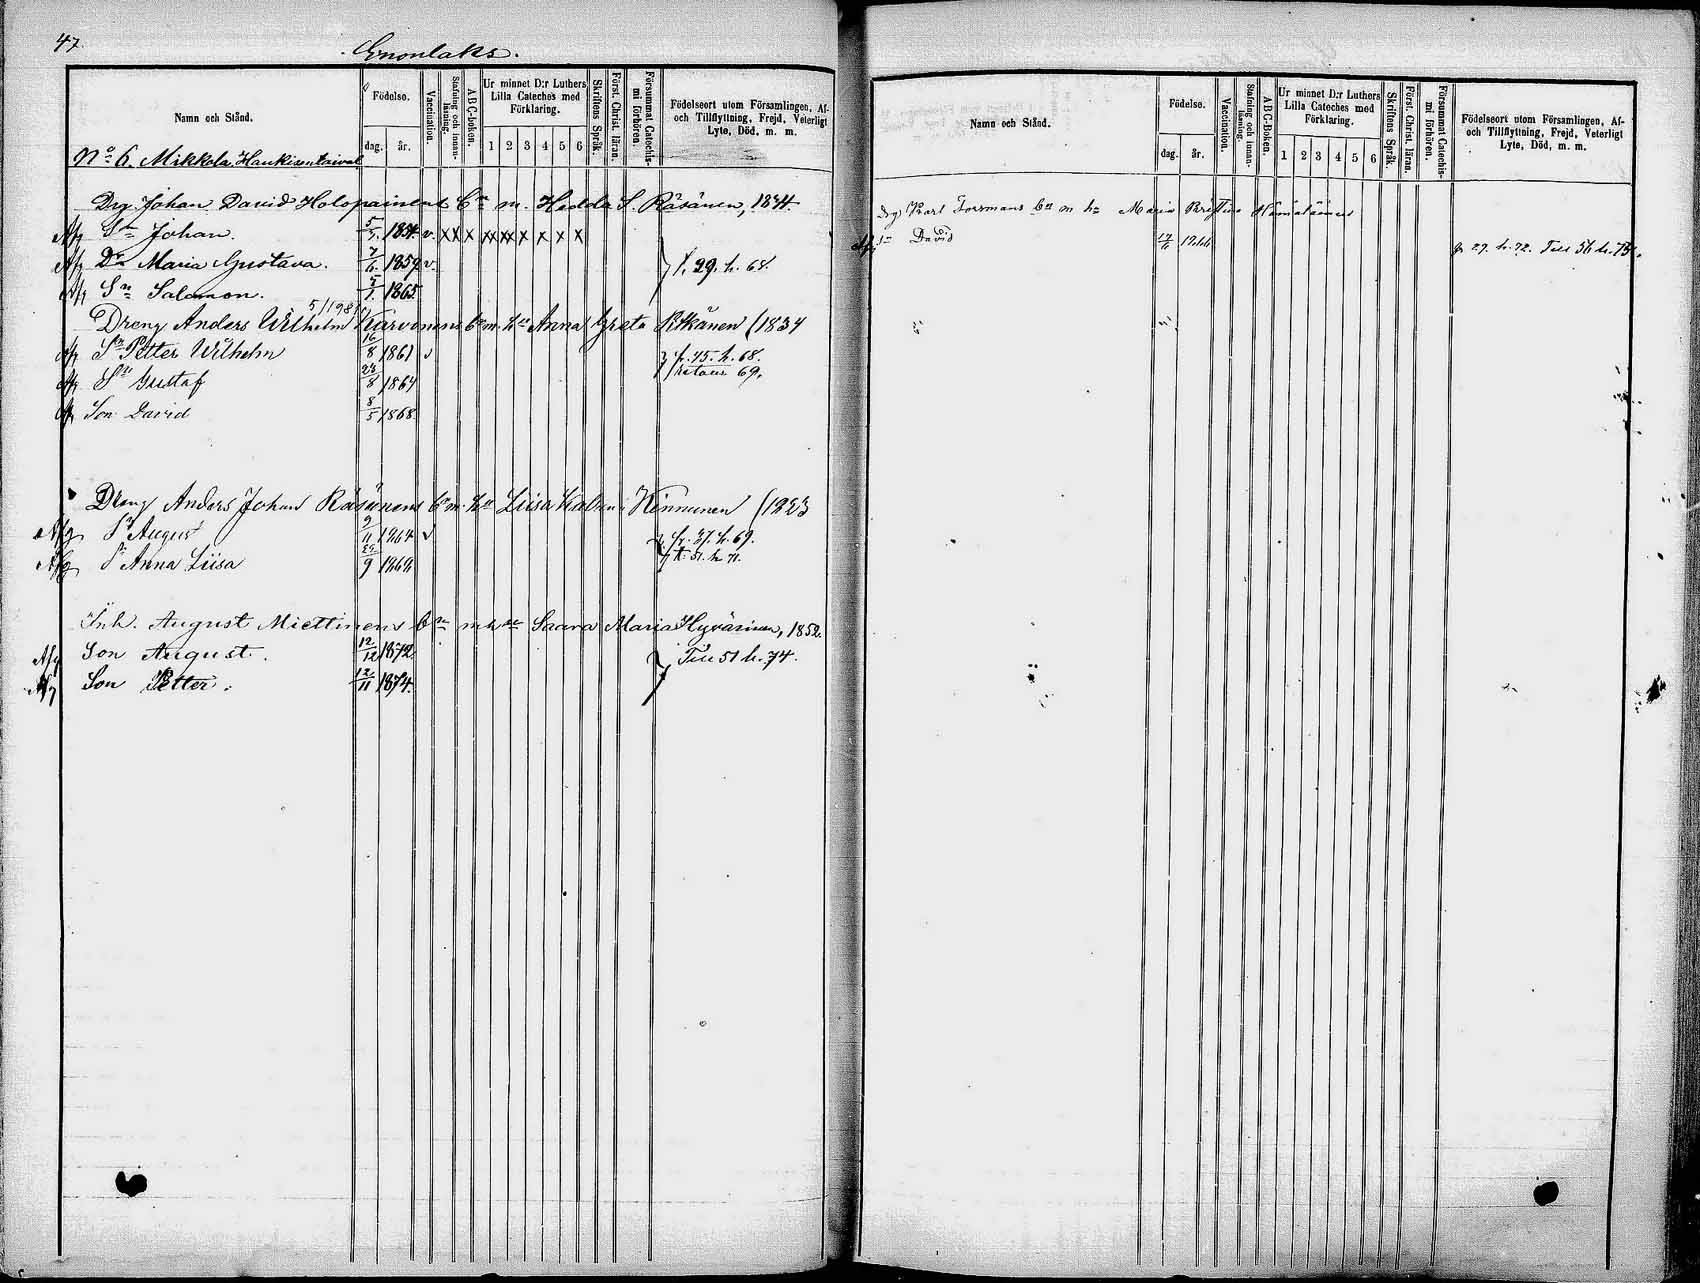 47.
Enonlaks.
Namn och Stånd.
Födelse.
dag.
år.
Vaccination.
Stafning och innanläsning.
ABC-boken.
Ur minnet D:r Luthers Lilla Cateches med Förklaring.
1 2 3 4 5 6
Skriftens Språk.
Först. Christ. läran.
Försummat Catechismi förhören
Födelseort utom Församlingen, Af- och Tillflyttning, Frejd, Veterligt Lyte, Död, m. m.
No 6. Mikkola, Haukisentaival
Drg. Johan David Holopainens bn m. Hedda S. Räsänen, 1834.
Afg Sn Johan. 5/7. 1854. v. x x x xx xx x x x x
Afg Dr Maria Gustava. 7/6. 1859. v. f. 29. h. 68.
Afg Sn Salomon. 5/1. 1865.
Dreng Anders Wilhelm Karvonens bn m. hu Anna Greta Pitkänen (1834
Afg Sn Petter Wilhelm 16/8 1861 v fr. 45. h. 68.
Afg Sn Gustaf 23/8 1864 69.
Afg Son David 8/5 1868.
Dreng Anders Johan Räsänens bn m. hu Liisa Kinnunen (1823
Afg Sn August 9/11 1864 v fr. 37. h. 69.
Afg Anna Liisa 9 1868 t. 51. h. 71.
Inh. August Miettinens bn m hu Saara Maria Hyvärinen, 1852.
Afg Son August. 12/12 1872. Till 51 h. 74.
Afg Son Petter. 12/11 1874.
Namn och Stånd.
Födelse.
dag.
år.
Vaccination.
Stafning och innanläsning.
ABC-Boken.
Ur minnet D:r Luthers Lilla Cateches med Förklaring.
1 2 3 4 5 6
Skriftens Språk.
Först. Christ. läran.
Försummat Catechismi förhören.
Födelseort utom Församlingen, Af- och Tillflyttning, Frejd, Veterligt Lyte, Död, m. m.
Drg Karl Forsmans bn m hu Maria Kristina Hämäläinen
Afg sn David 1866 fr 27. h. 72. Till 56 h. 73.